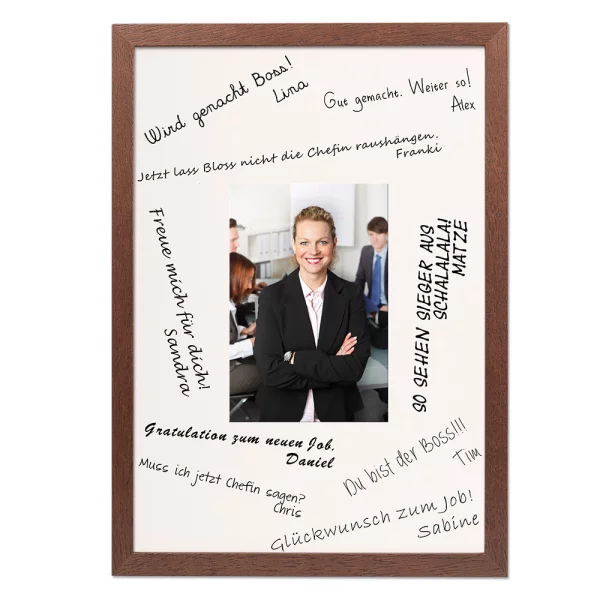 Wird gemacht Boss!
Lina
Gut gemacht. Weiter so!
Alex
Jetzt lass Bloss nicht die Chefin raushängen.
Franki
Freue mich für dich!
Sandra
SO SEHEN SIEGER AUS
SCHALALALA!
MATZE
Gratulation zum neuen Job.
Daniel
Muss ich jetzt Chefin sagen?
Chris
Du bist der Boss!!!
Tim
Glückwunsch zum Job!
Sabine